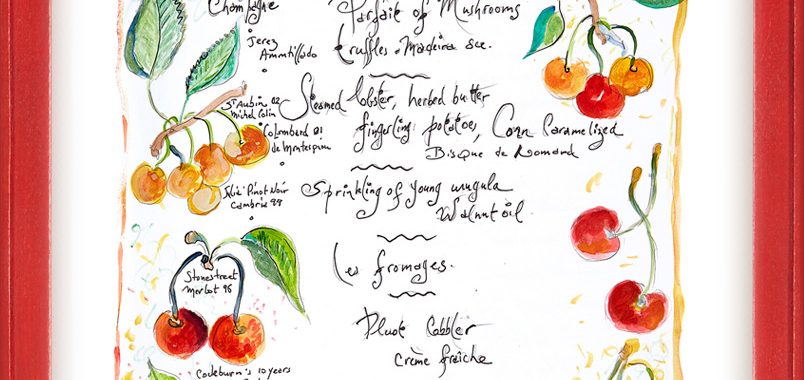 Champagne
Parfait of Mushrooms
Jerez
Ammtillado
truffles. Madeira sce.
St Aubin 02
Michel Colin
Steamed lobster, herbed butter
Colombard 01
de Montespun
fingerling potatoe, Corn Caramelized
Bisque de Homard
Pinot Noir
Cambria 99
Sprinkling of young urugula
Walnut oil.
Les fromages.
Stonestreet
Merlot 96
Pluot Cobbler
Crème fraîche
Cockburn's 10 years